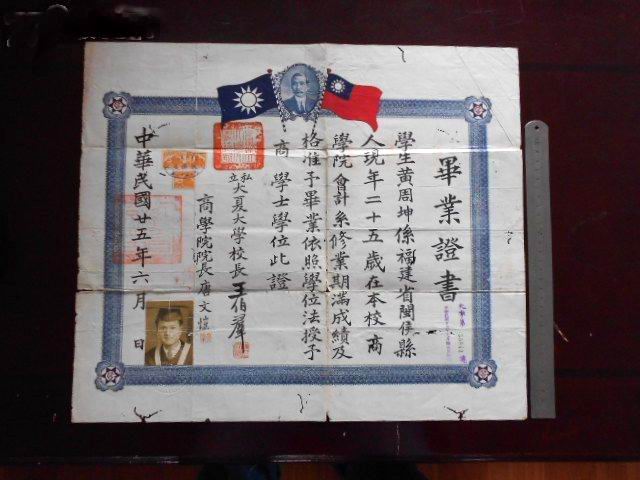 畢業證書
學生黃周坤係福建省閩侯縣
人現年二十五歲在本校商
學院會計系修業期滿成績及
格准予畢業依照學位法授予
商學士學位此證
私立大夏大學校長王伯羣
商學院院長唐文愷
中華民國廿五年六月 日